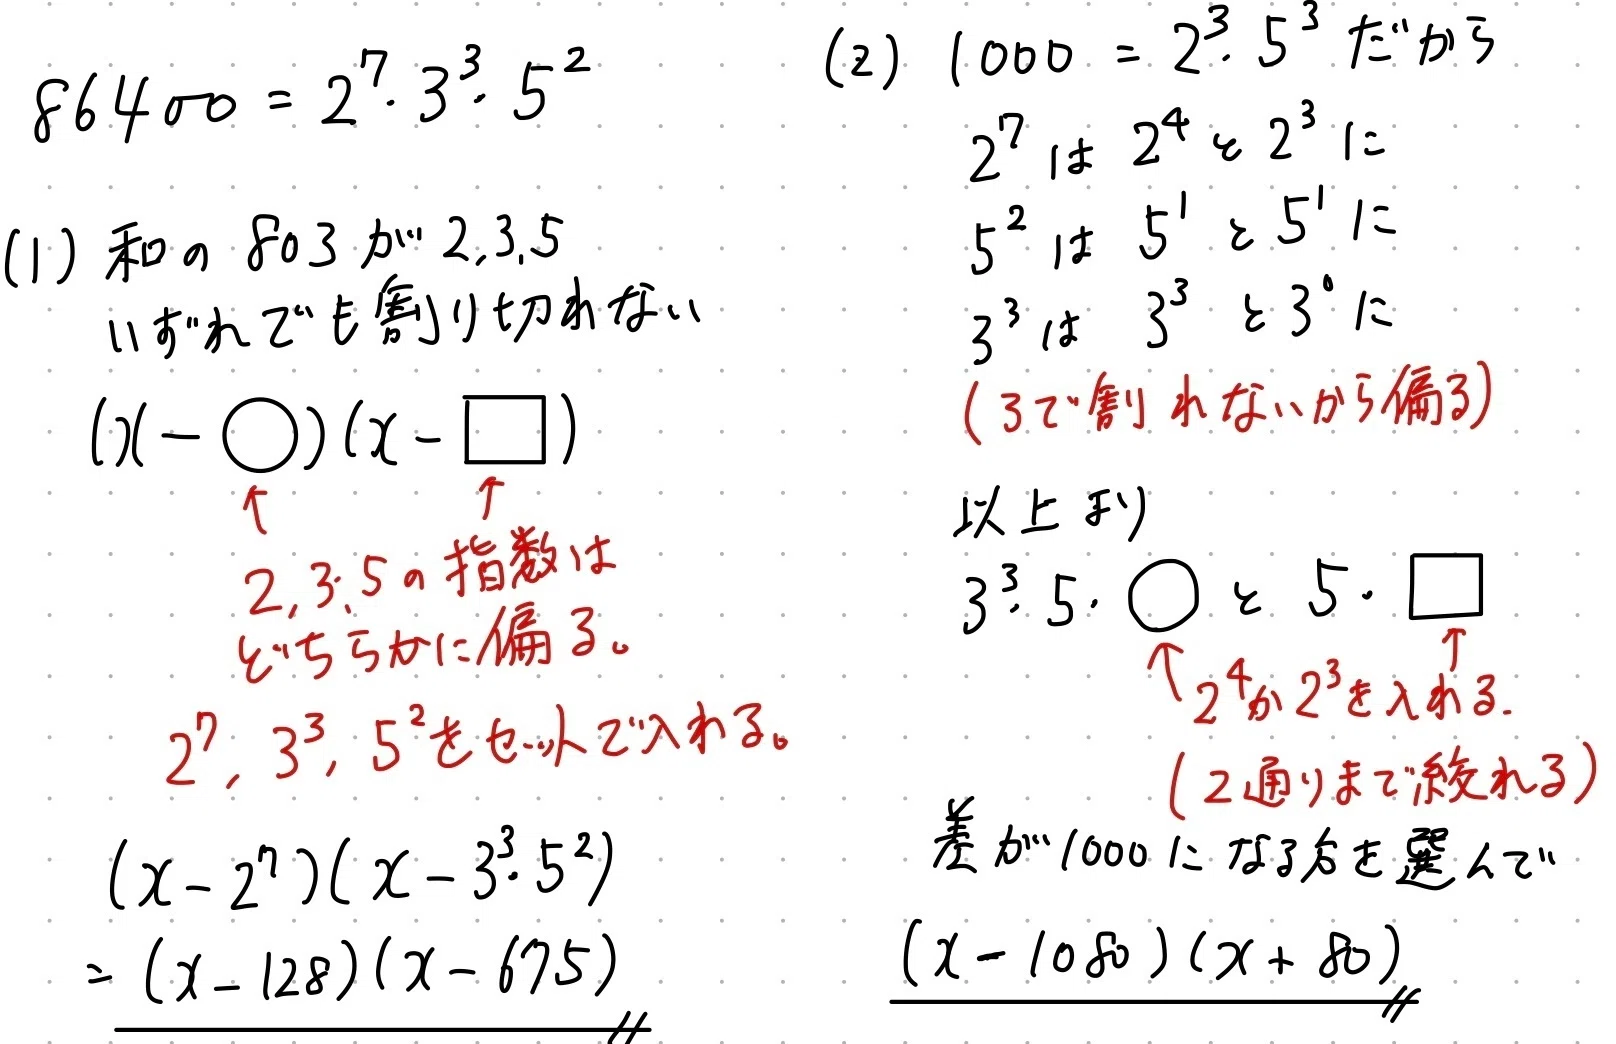 86400 = 2⁷・3³・5²
(1) 和の 803 が 2,3,5
いずれでも割り切れない
(x - ○)(x - □)
↑ ↑
2,3,5の指数は
どちらかに偏る。
2⁷, 3³, 5²をセットで入れる。
(x - 2⁷)(x - 3³・5²)
= (x - 128)(x - 675)
(2) 1000 = 2³・5³ だから
2⁷ は 2⁴ と 2³ に
5² は 5¹ と 5¹ に
3³ は 3³ と 3⁰ に
(3で割れないから偏る)
以上より
3³・5・○ と 5・□
↑ ↑
2⁴か2³を入れる.
(2通りまで絞れる)
差が1000になる方を選んで
(x - 1080)(x + 80)